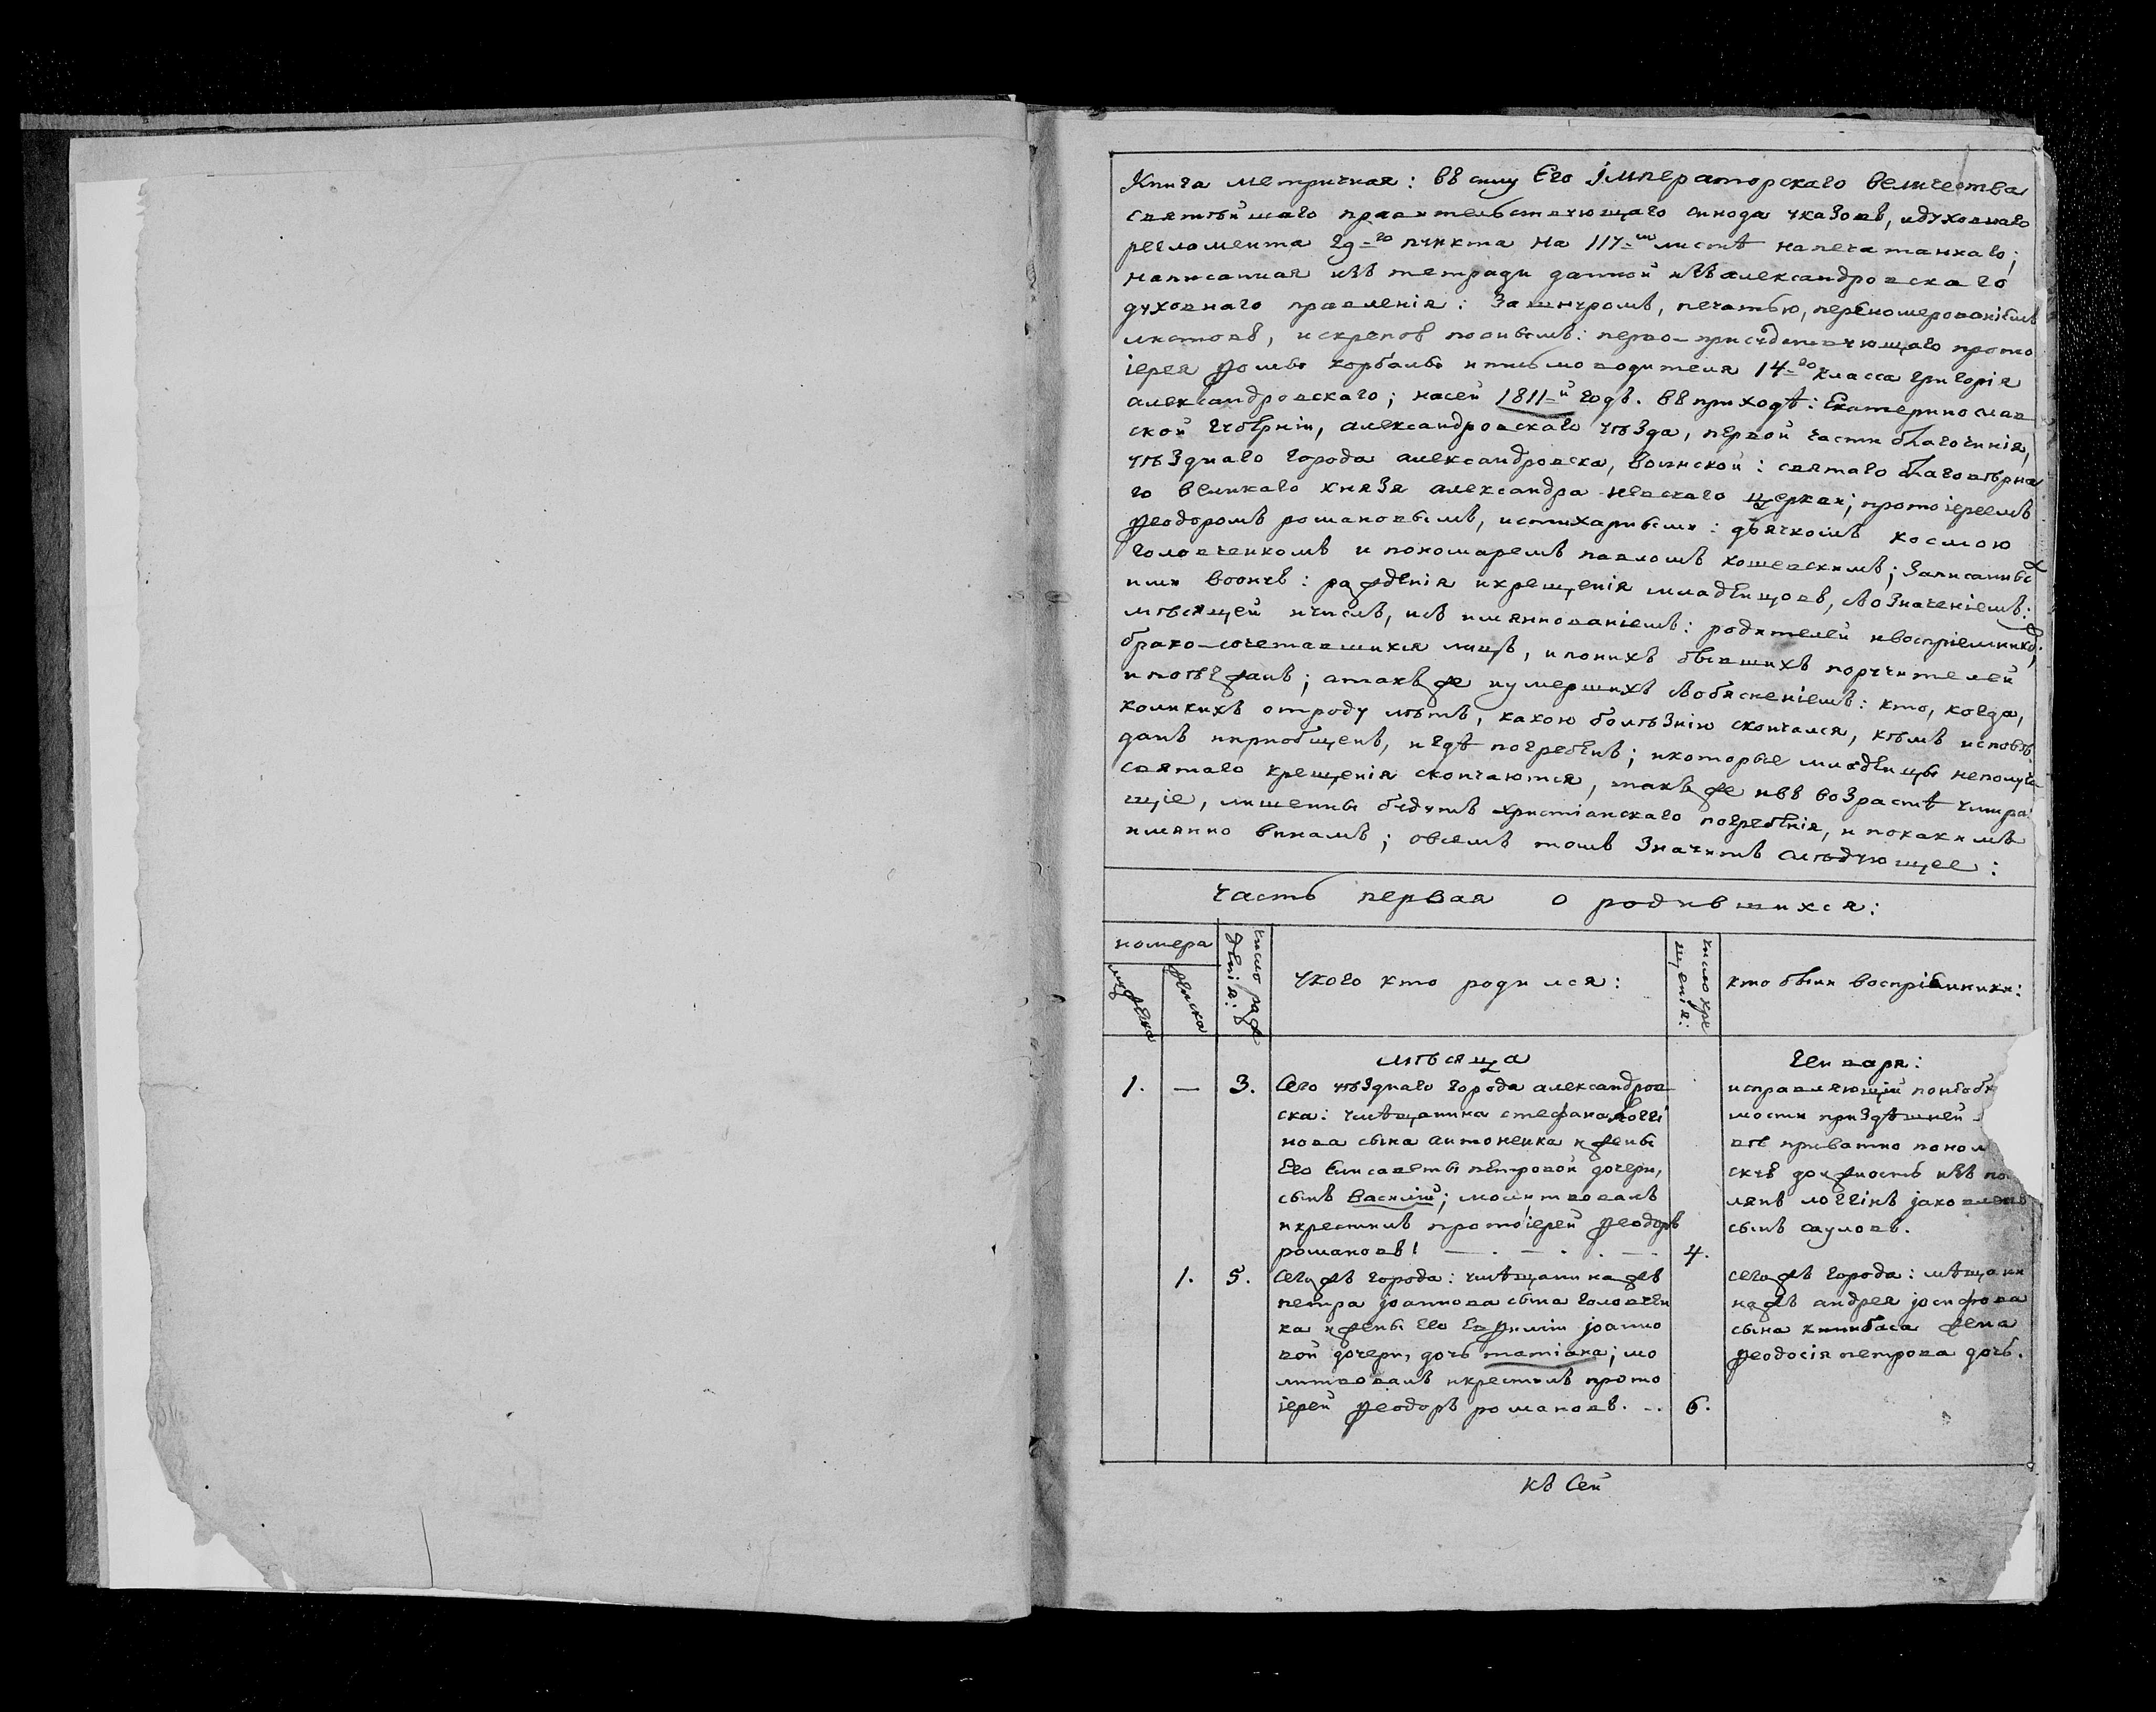 Книга метричная: въ силу Его Императорскаго Величества
святѣйшаго правительствующаго синода указовъ, и духовнаго
регламента 29-го пункта на 117-м листѣ напечатаннаго;
написанная изъ тетради данной изъ александровскаго
духовнаго правленія: за шнуромъ, печатью, перeномерованіемъ
листовъ, и скрепов по онымъ: перво-присудствующаго прото
іерея Фомы корбаны и письмоводителя 14-го класса григорія
александровскаго; на сей 1811-й годъ. въ приходѣ: Екатеринослав
ской губерніи, александровскаго уѣзда, первой части благочинія,
уѣзднаго города александровска, воинской: святаго благовѣрна
го великаго князя александра невскаго церкви; протоіереемъ
Ѳеодоромъ романовымъ, и стихарными: дьячкомъ космою
головченкомъ и пономаремъ павломъ кошевскимъ; записанныхъ
ими во оную: ражденія и крещенія младенцовъ, со означеніемъ:
мѣсяцей и числъ, и съ имяннованіемъ: родителей и воспріемников;
брако-сочетавшихся лицъ, и по нихъ бывшихъ поручителей
и поѣзжанъ; а такъ же и умершихъ со обясненіемъ: кто, когда,
коликихъ от роду лѣтъ, какою болѣзнію скончался, кѣмъ исповѣ
данъ и приобщенъ, и гдѣ погребенъ; и которые младенцы не получа
святаго крещенія скончаются, такъ же и въ возрастѣ умира
щіе, лишенны будутъ христіанскаго погребенія, и по какимъ
имянно винамъ; о всемъ томъ значитъ слѣдующее:
часть первая о родившихся:
номера
мужеска
женска
число раж
денія:
у кого кто родился:
число кре
щенія:
кто были воспріемники:
мѣсяца
Генваря:
1. — 3. Сего уѣзднаго города александров
ска: у мѣщанина стефана логги
нова сына антоненка и жены
Его Елисаветы петровой дочери,
сынъ Василій; молитвовалъ
и крестилъ протоіерей Ѳеодоръ
романовъ! — . — . — 4.
исправляющій по
мости при здѣшней
вѣ приватно поном
скую должность изъ
лянъ логгінъ
сынъ сауловъ.
1. 5. Сего жъ города: у мѣщанина жъ
петра іоаннова сына головчен
ка и жены Его Евфиміи іоанно
вой дочери, дочь татіана; мо
литвовалъ и крестилъ прото
іерей Ѳеодоръ романовъ. — 6.
сего жъ города: мѣщани
на жъ андрея іосифова
сына жена
Ѳеодосія петрова дочь.
къ Сей